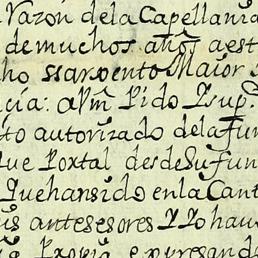 Razón dela Capellania
demuchos años aest
ho ssarpento Maior
cia: a Vm Pido Ysup
to autorizado dela fun
que Portal desde su fun
Quehansido enla Cant
us antesesores Y Yo hau
Propia expresand